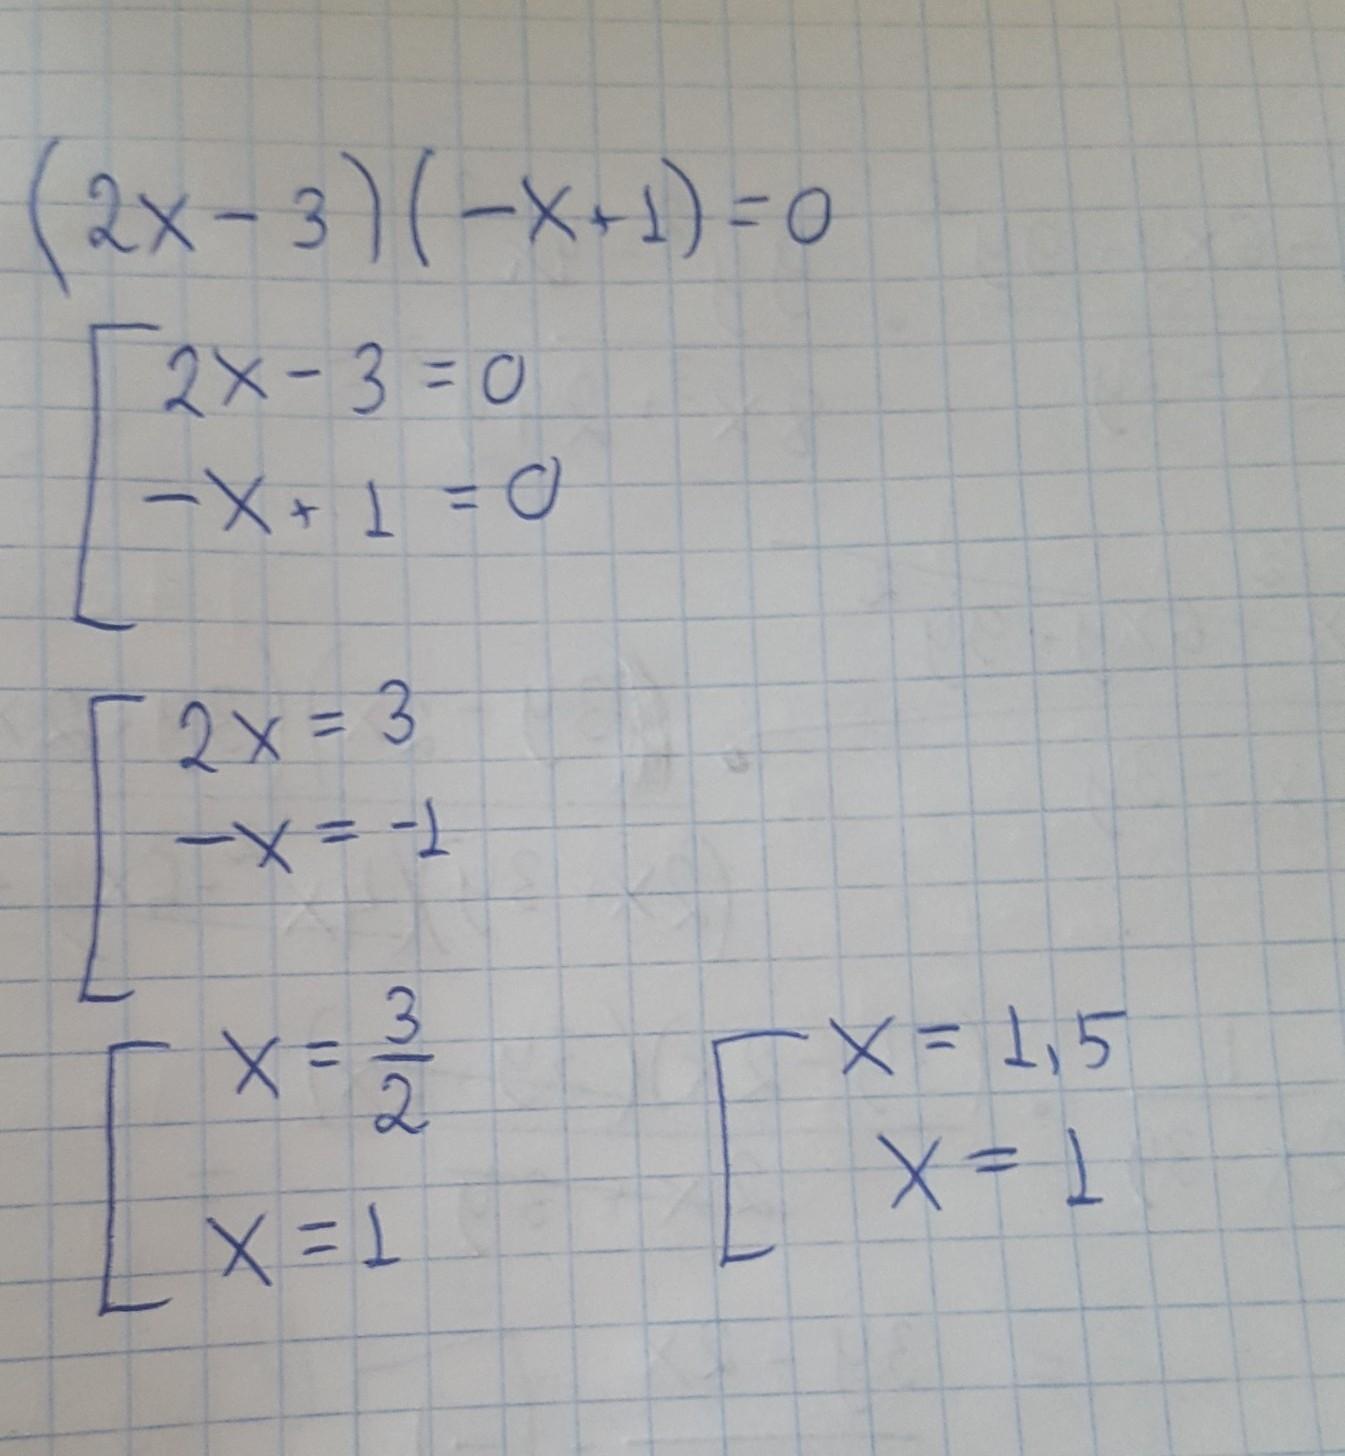 (2x - 3)(-x+1)=0
2x - 3 = 0
-x + 1 = 0
2x = 3
-x = -1
x = 3/2
x = 1
x = 1,5
x = 1